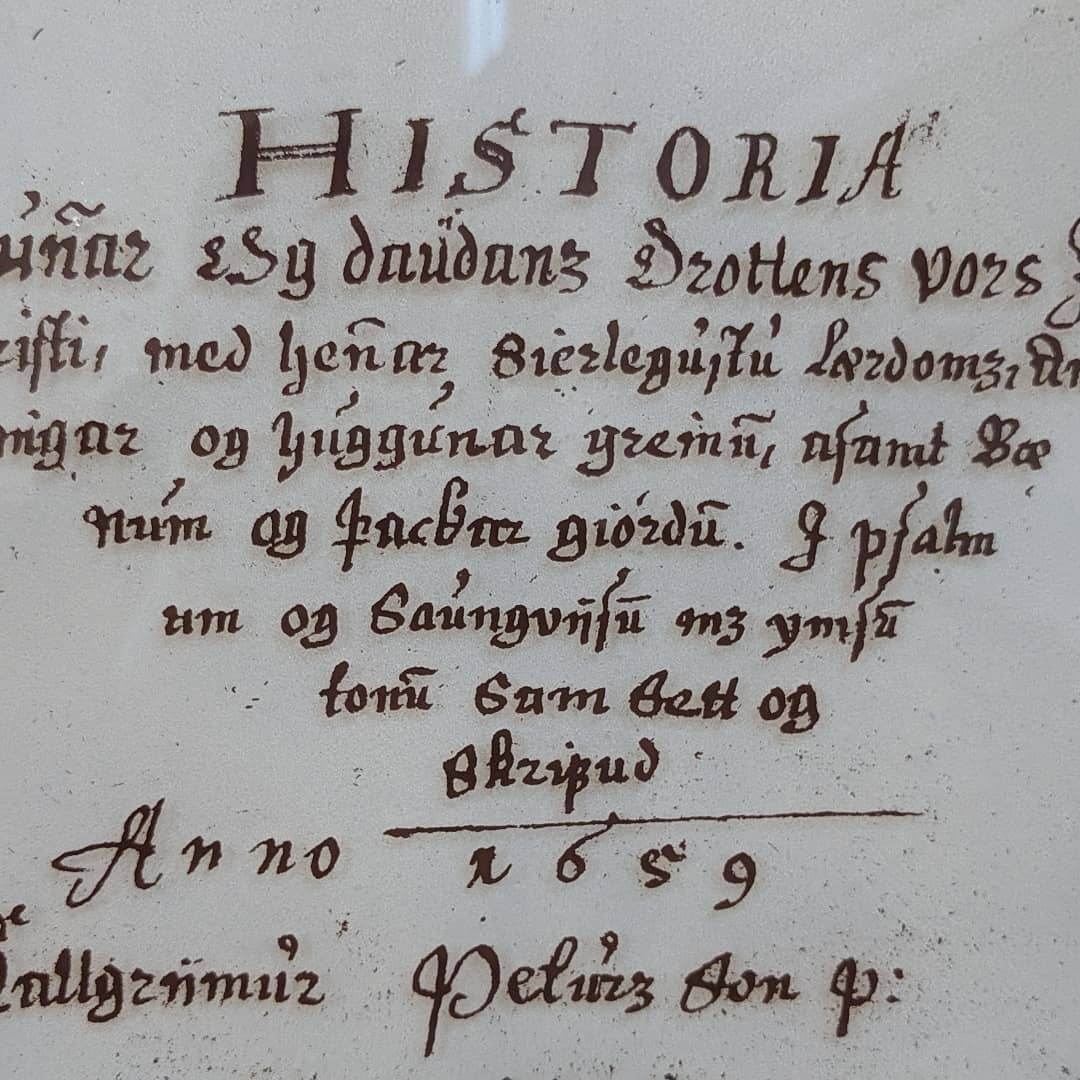 HISTORIA
uñar og daüdans Drottens vors
risti, med heñar Sierlegustu Lærdoms,
ningar og huggunar greinū, asamt Bæ
num og þackar giördū. I psalm
um og Saungvijsū mz ymsū
tonū Sam Sett og
Skripud
Anno 1659
Hallgrijmur Peturs Son P: